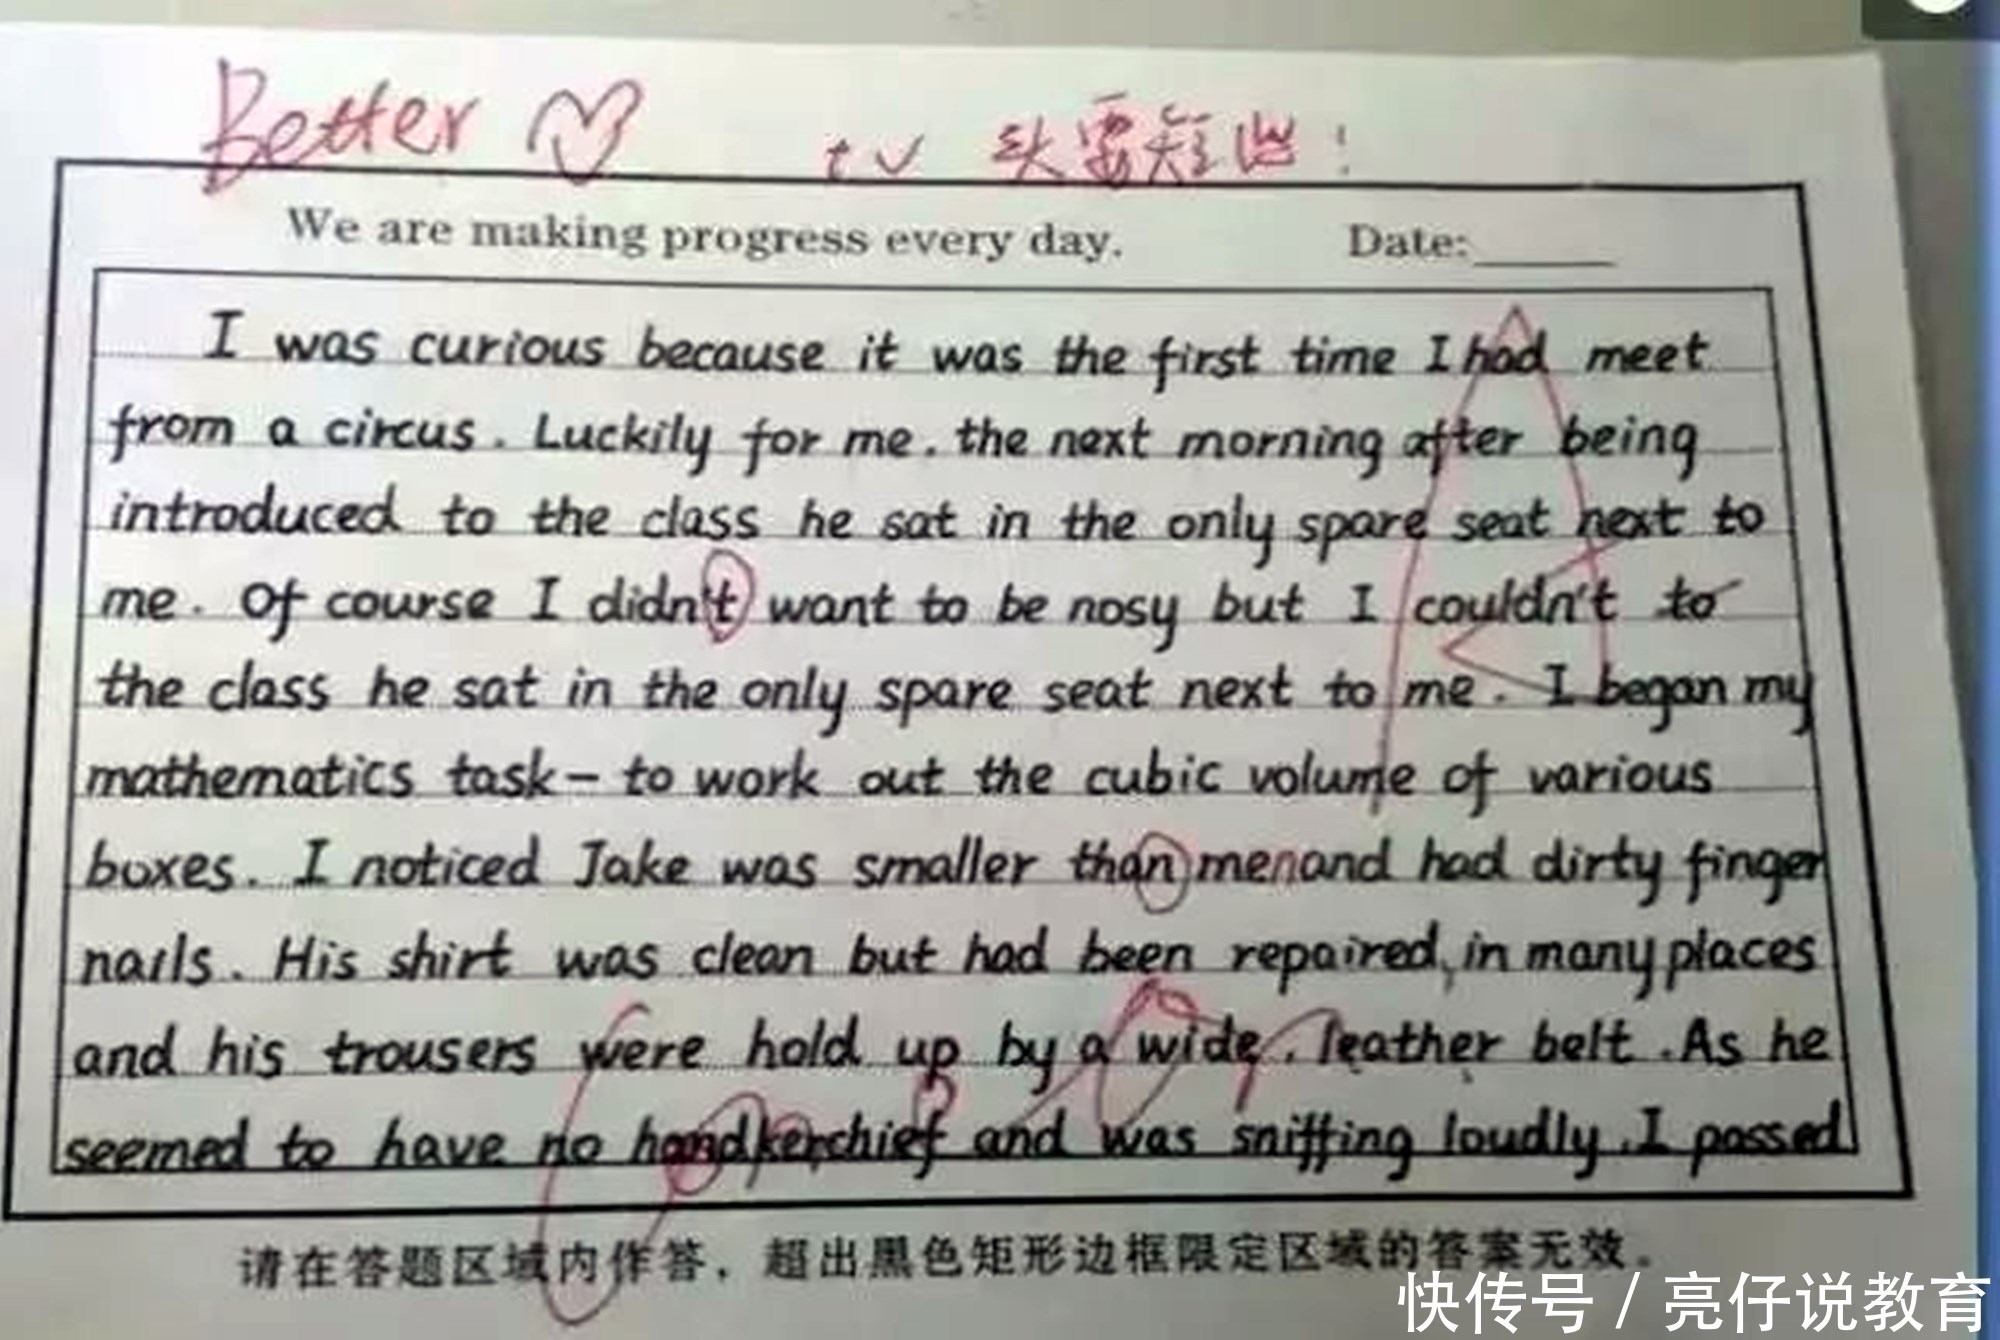 Better
t v 头要短些!
We are making progress every day. Date:
I was curious because it was the first time I had meet
from a circus. Luckily for me. the next morning after being
introduced to the class he sat in the only spare seat next to
me. Of course I didn't want to be nosy but I couldn't to
the class he sat in the only spare seat next to me. I began my
mathematics task- to work out the cubic volume of various
boxes. I noticed Jake was smaller than men and had dirty finger
nails. His shirt was clean but had been repaired, in many places
and his trousers were hold up by a wide, leather belt. As he
seemed to have no handkerchief and was sniffing loudly. I passed
请在答题区域内作答，超出黑色矩形边框限定区域的答案无效。
快传号 / 亮仔说教育